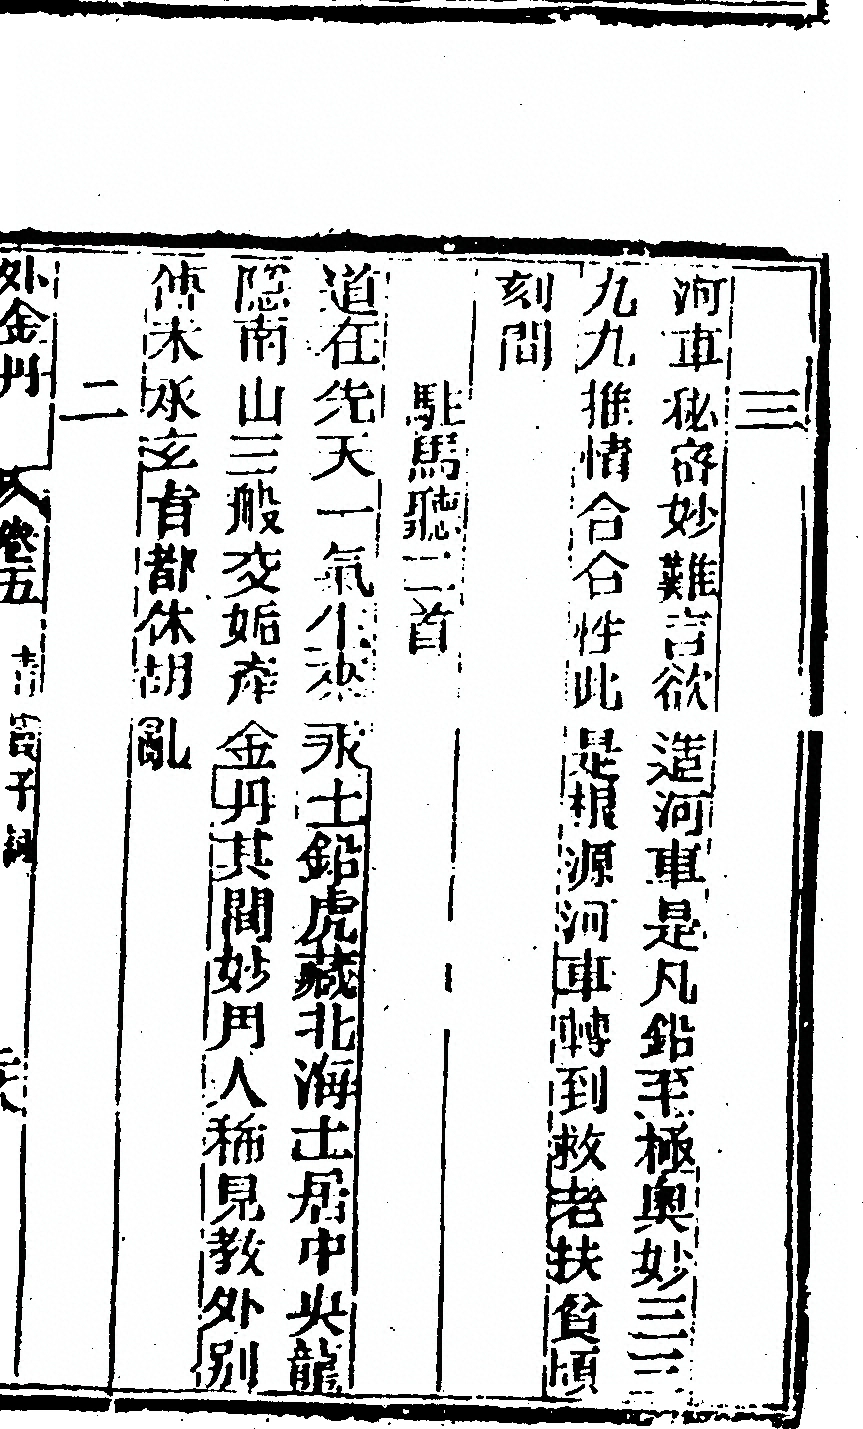 三
河車秘密妙難言欲造河車是凡鉛至極奧妙三三
九九推情合合性此是根源河車轉到救老扶貧頃
刻間
駐馬聽二首
道在先天一氣生來永土鉛虎藏北海土居中央龍
隱南山三般交姤産金丹其間妙用人稀見教外别
傳未承玄肓都休胡亂
二
外金丹 卷五 青霞子詞